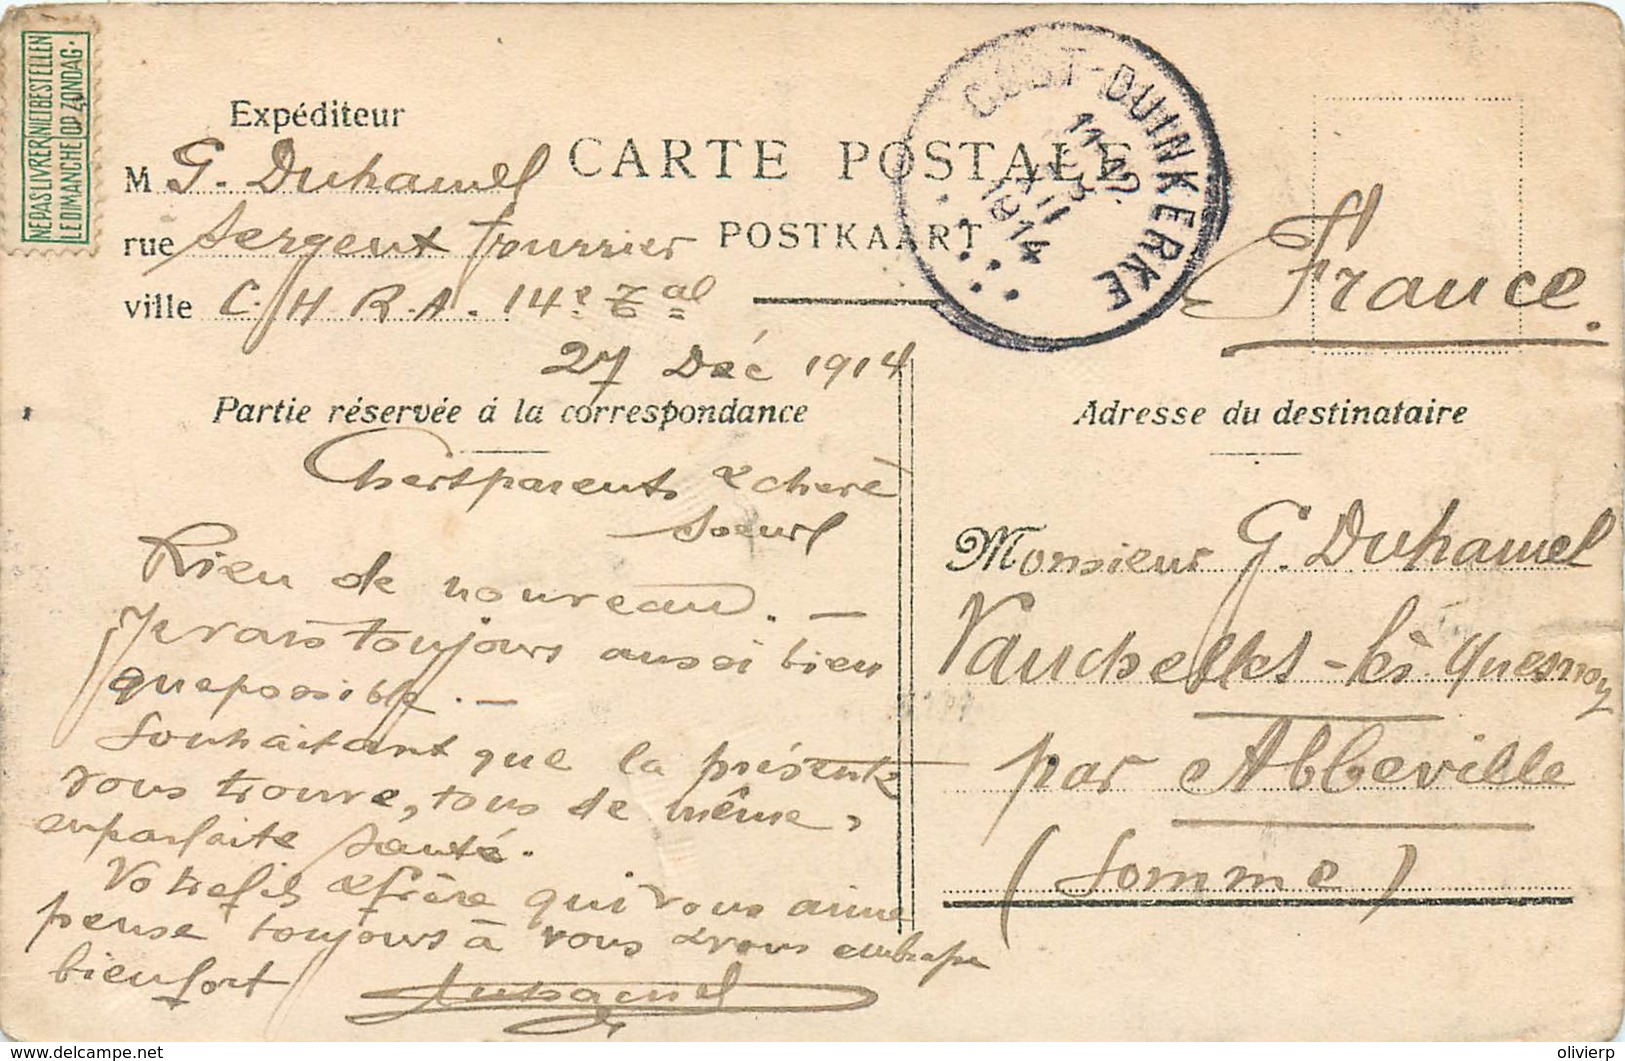 NE PAS LIVRER NIET BESTELLEN
LE DIMANCHE OP ZONDAG.
Expéditeur
M G. Duhamel
rue Sergent fourrier
ville C.H.R.A. 14e Zal
27 Déc 1914
CARTE POSTALE
POSTKAART
OOST-DUINKERKE
11-12
3
XII
14
France.
Partie réservée à la correspondance
Chers parents & chère
soeur
Rien de nouveau. —
Je vais toujours aussi bien
que possible. —
Souhaitant que la présente
vous trouve, tous de même,
en parfaite santé.
Votre fils & frère qui vous aime
pense toujours à vous & vous embrasse
bien fort
Duhamel
Adresse du destinataire
Monsieur G. Duhamel
Vauchelles-lès-Quesnoy
par Abbeville
(Somme)
olivierp